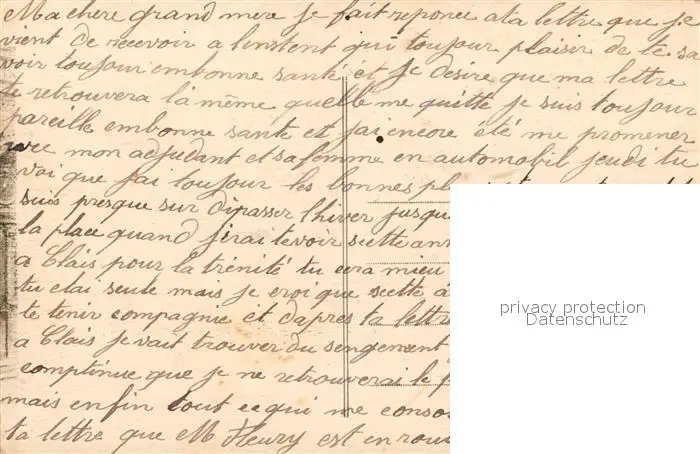 Ma chere grand mere je fait reponce a ta lettre que je
vient de recevoir a linstent qui toujour plaisir de te sa
voir toujour embonne santé et je désire que ma lettre
te retrouvera la même quelle me quitte je suis toujour
pareille embonne sante et jai encore été me promener
avec mon adjudant et safemme en automobil jeudi tu
voi que jai toujour les bonnes
suis presque sur dipasser lhiver jusqu
la place quand jirai te voir scette
a Clais pour la trénité tu cera mieu
tu etai seule mais je croi que scette
te tenir compagnie et dapres ta lettre
a Clais je vait trouver du sengement
comptinue que je ne retrouverai le
mais enfin tout ce qui me conso
ta lettre que M Fleury est en rou
privacy protection
Datenschutz